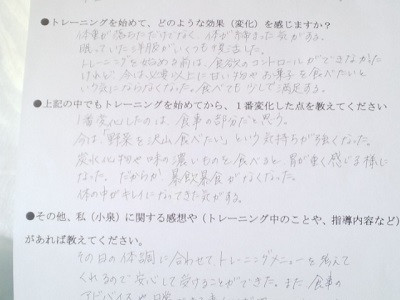 ●トレーニングを始めて、どのような効果（変化）を感じますか？
体重が落ちただけでなく、体が締まった気がする。
眠っていた洋服がいくつも復活した。
トレーニングを始める前は、食欲のコントロールができなかった
けれど、今は必要以上に甘い物やお菓子を食べたいとい
う気にならなくなった。食べても少しで満足する。
●上記の中でもトレーニングを始めてから、１番変化した点を教えてください
1番変化したのは、食事の部分だと思う。
今は「野菜を沢山食べたい」という気持ちが強くなった。
炭水化物や味の濃いものを食べると、胃が重く感じる様に
なった。だからか暴飲暴食がなくなった。
体の中がキレイになってきた気がする。
●その他、私（小泉）に関する感想や（トレーニング中のことや、指導内容など）
があれば教えてください。
その日の体調に合わせてトレーニングメニューを考えて
くれるので安心して受けることができた。また食事の
アドバイスや